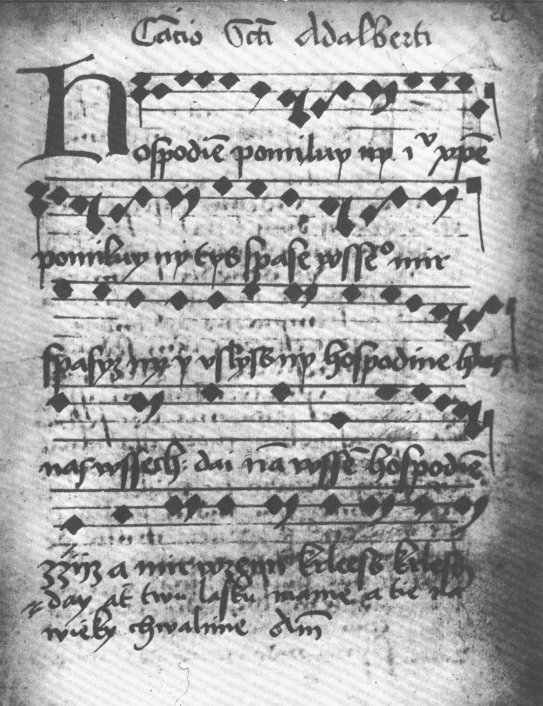 Cāтio Sctī Adalberti
Hospodiē pomiluy ny iᵛ xpē
pomiluy ny tys spase wssēᵒ mir
spasyz ny y vslyss ny hospodine hlas
nas wssech dai nā wssē hospodiē
zzijz a mir wzemi krleess krless
day at twu lasku mame a tie na
wieky chwalmie Am̄